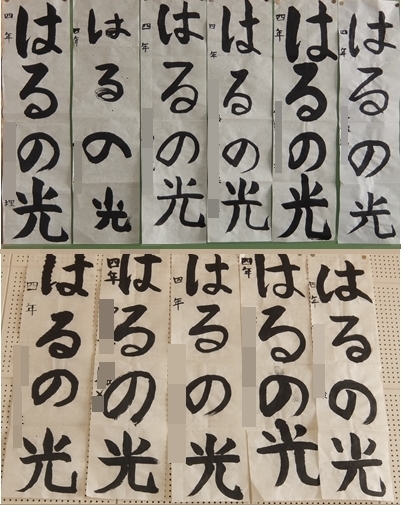 はるの光
四年
はるの光
四年
はるの光
四年
はるの光
四年
はるの光
四年
はるの光
四年
はるの光
四年
はるの光
四年
はるの光
四年
はるの光
四年
はるの光
四年